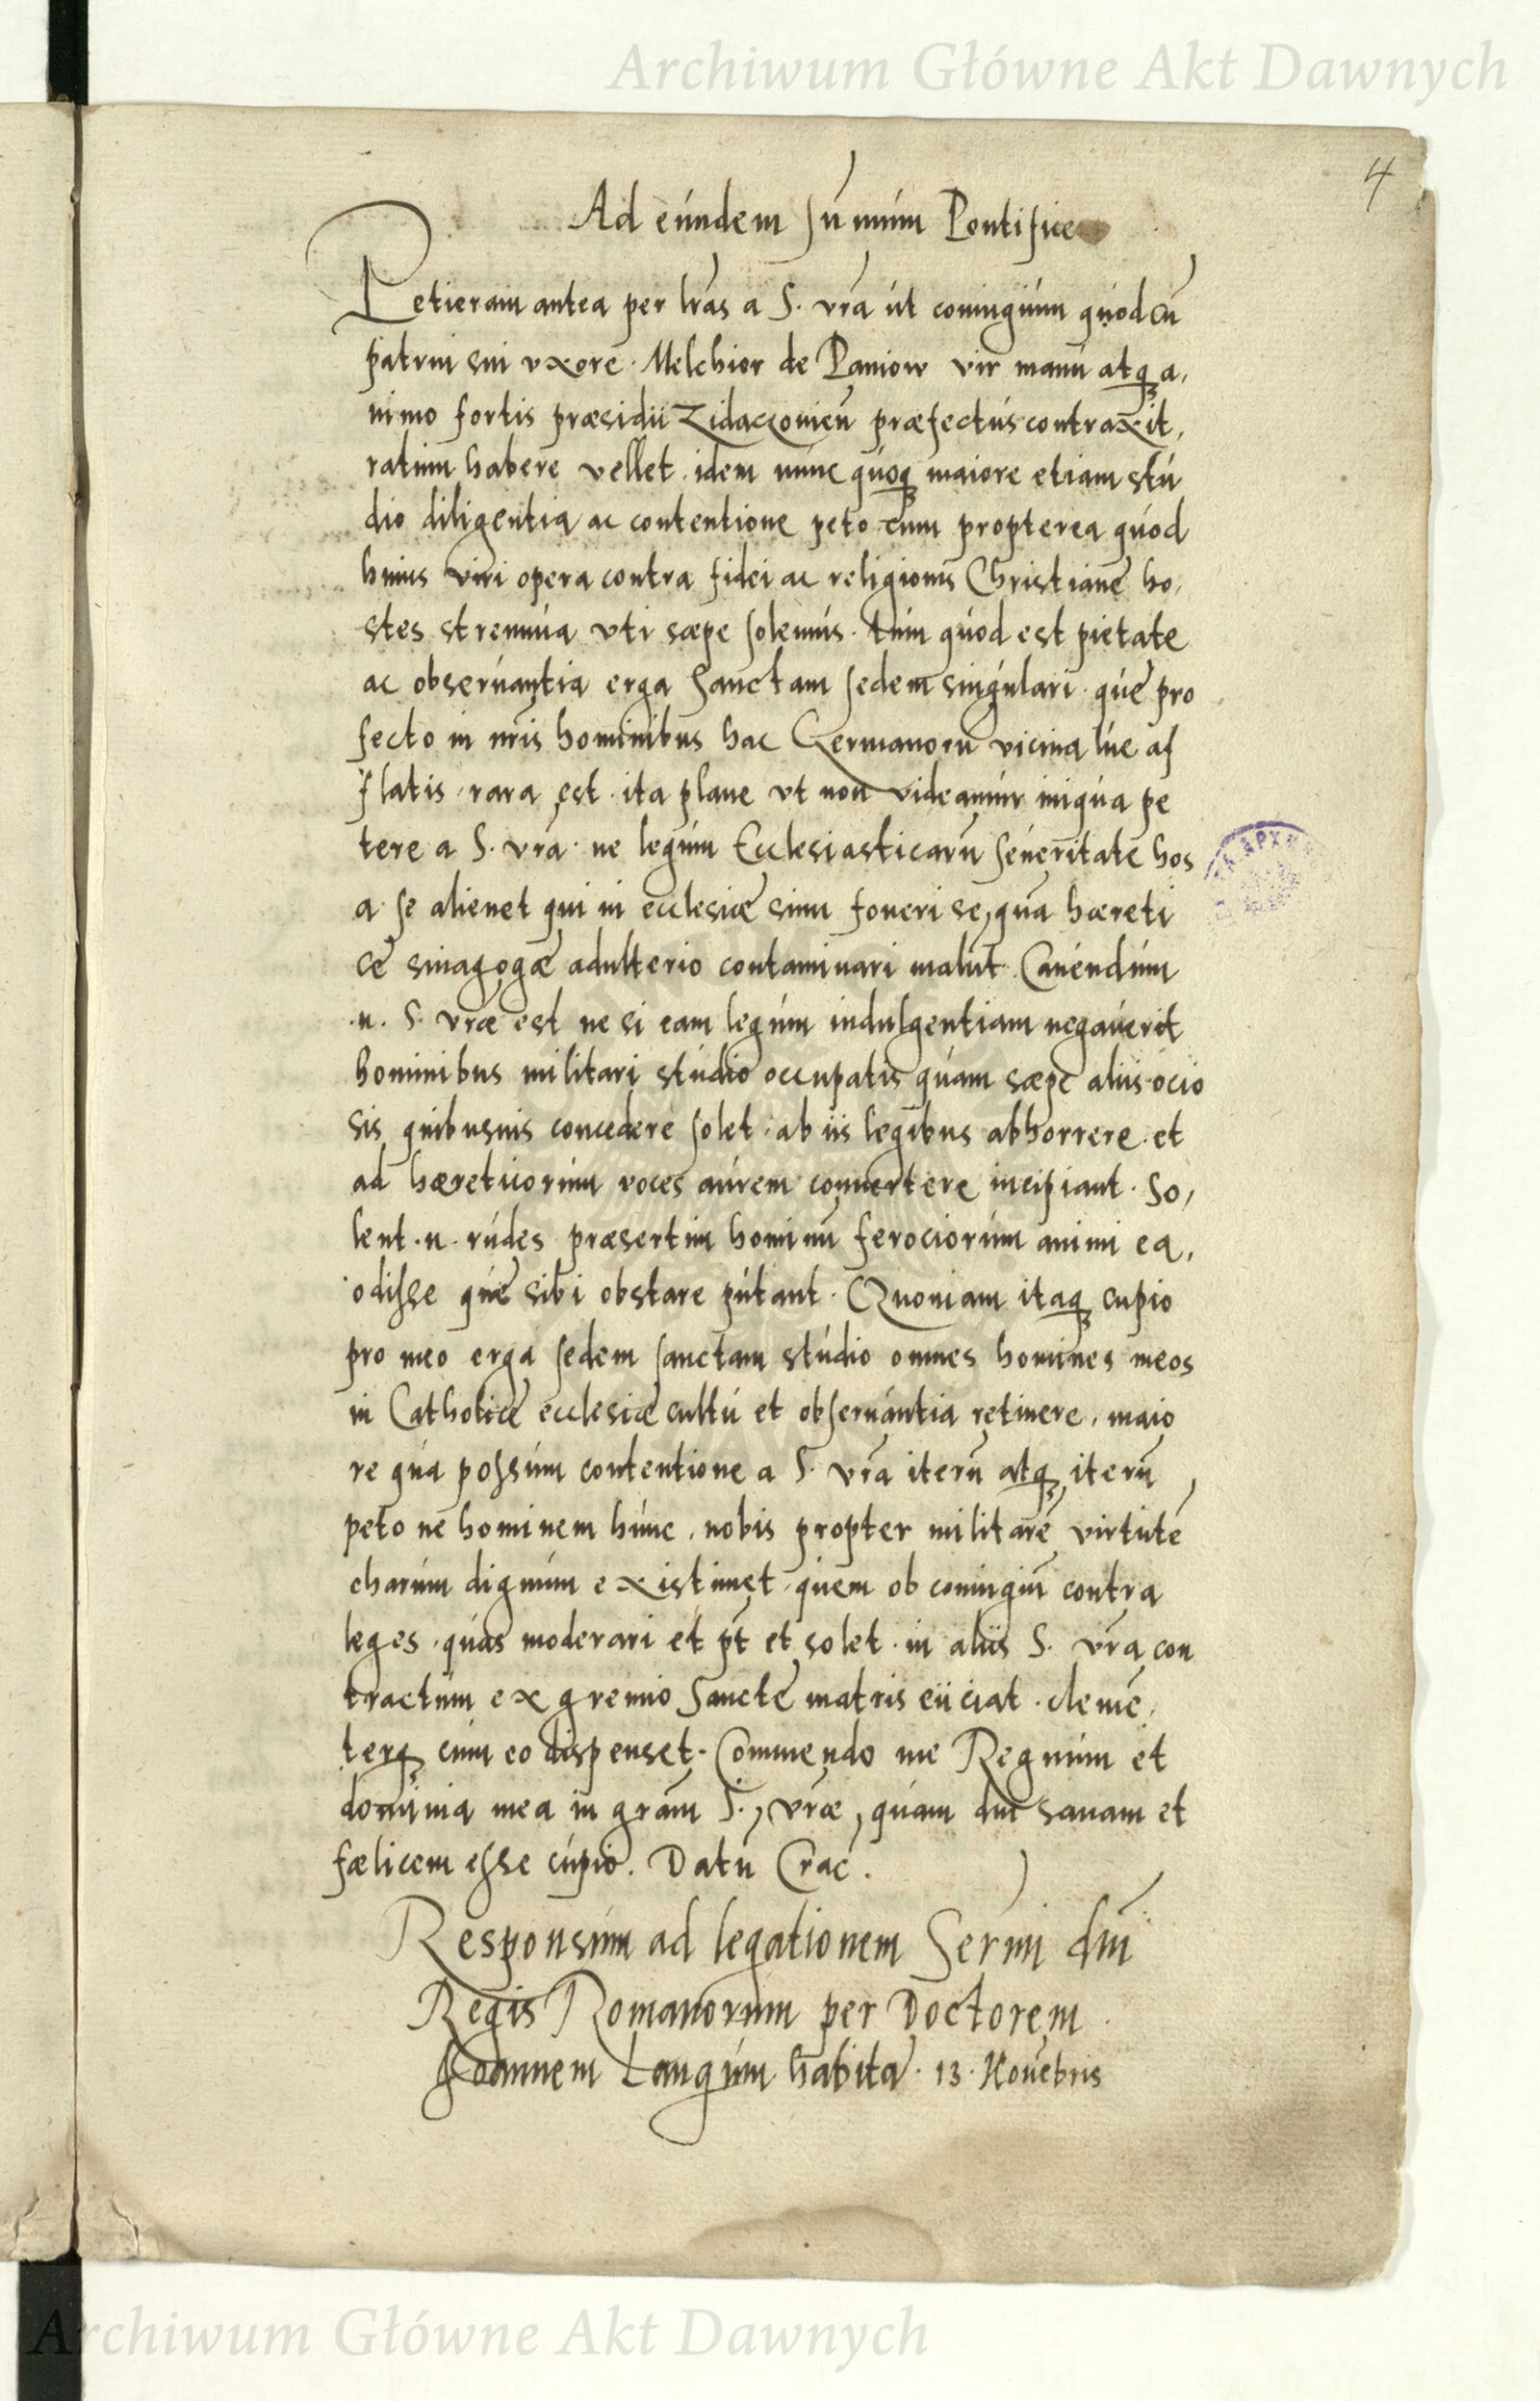 Archiwum Główne Akt Dawnych
4
Ad eúndem sũmúm Pontifice
Petieram antea per lr̃as a S. vr̃a út coniugiúm qúod cũ
patrui sui vxorẽ. Melchior de Paniow vir manú atq̃ a,
nimo fortis præsidii Zidaczonieñ præfectús contraxit,
ratúm habere vellet. idem núnc qúoq̃ maiore etiam stú
dio diligentia ac contentione peto cum propterea qúod
huius viri opera contra fidei ac religionis Christianę ho,
stes strenúa vti sæpe solemús. túm qúod est pietate
ac obserúantia erga Sanctam sedem singúlari. qúę pro
fecto in nr̃is hominibus hac Germanorũ vicina lúe af
flatis, rara est. ita plane vt non videamúr iniqúa pe
tere a S. vr̃a. ne legúm Ecclesiasticarũ séueritate hos
a se alienet qui in ecclesiæ sinu foueri se, quã hæreti
cę sinagogæ adulterio contaminari malũt. Cauéndúm
.n. S. vræ est ne si eam legúm indulgentiam negáuerit
hominibus militari stúdio occupatis qúam sæpe aliis ocio
sis quibusuis concedere solet. ab iis legibus abhorrere. et
ad hæreticorúm voces aúrem conuertere incipiant. So,
lent .n. rúdes præsertim hominũ ferociorúm animi ea,
odisse qúę sibi obstare pútant. Quoniam itaq̃ cupio
pro meo erga sedem sanctam stúdio omnes homines meos
in Catholicę ecclesiæ cultú et obseruántia retinere, maio
re quã possúm contentione a S. vr̃a iterũ atq̃, iterũ
peto ne hominem húnc, nobis propter militarẽ virtutẽ
charúm dignúm existimet, qúem ob coniugiũ contra
leges, qúas moderari et pt̃ et solet. in aliis S. vr̃a con
tractúm ex gremio Sanctę matris eiiciat. clemẽ,
terq̃ cúm eo dispenset. Commendo me Regnúm et
dominia mea in gr̃am S., vræ, qúam diu sanam et
fælicem esse cúpio. Datũ Crac̃.
Responsúm ad legationem Ser̃mi dñi
Regis Romanorúm per Doctorem
Joannem Langúm habitã. 13. Nouẽbris
Archiwum Główne Akt Dawnych